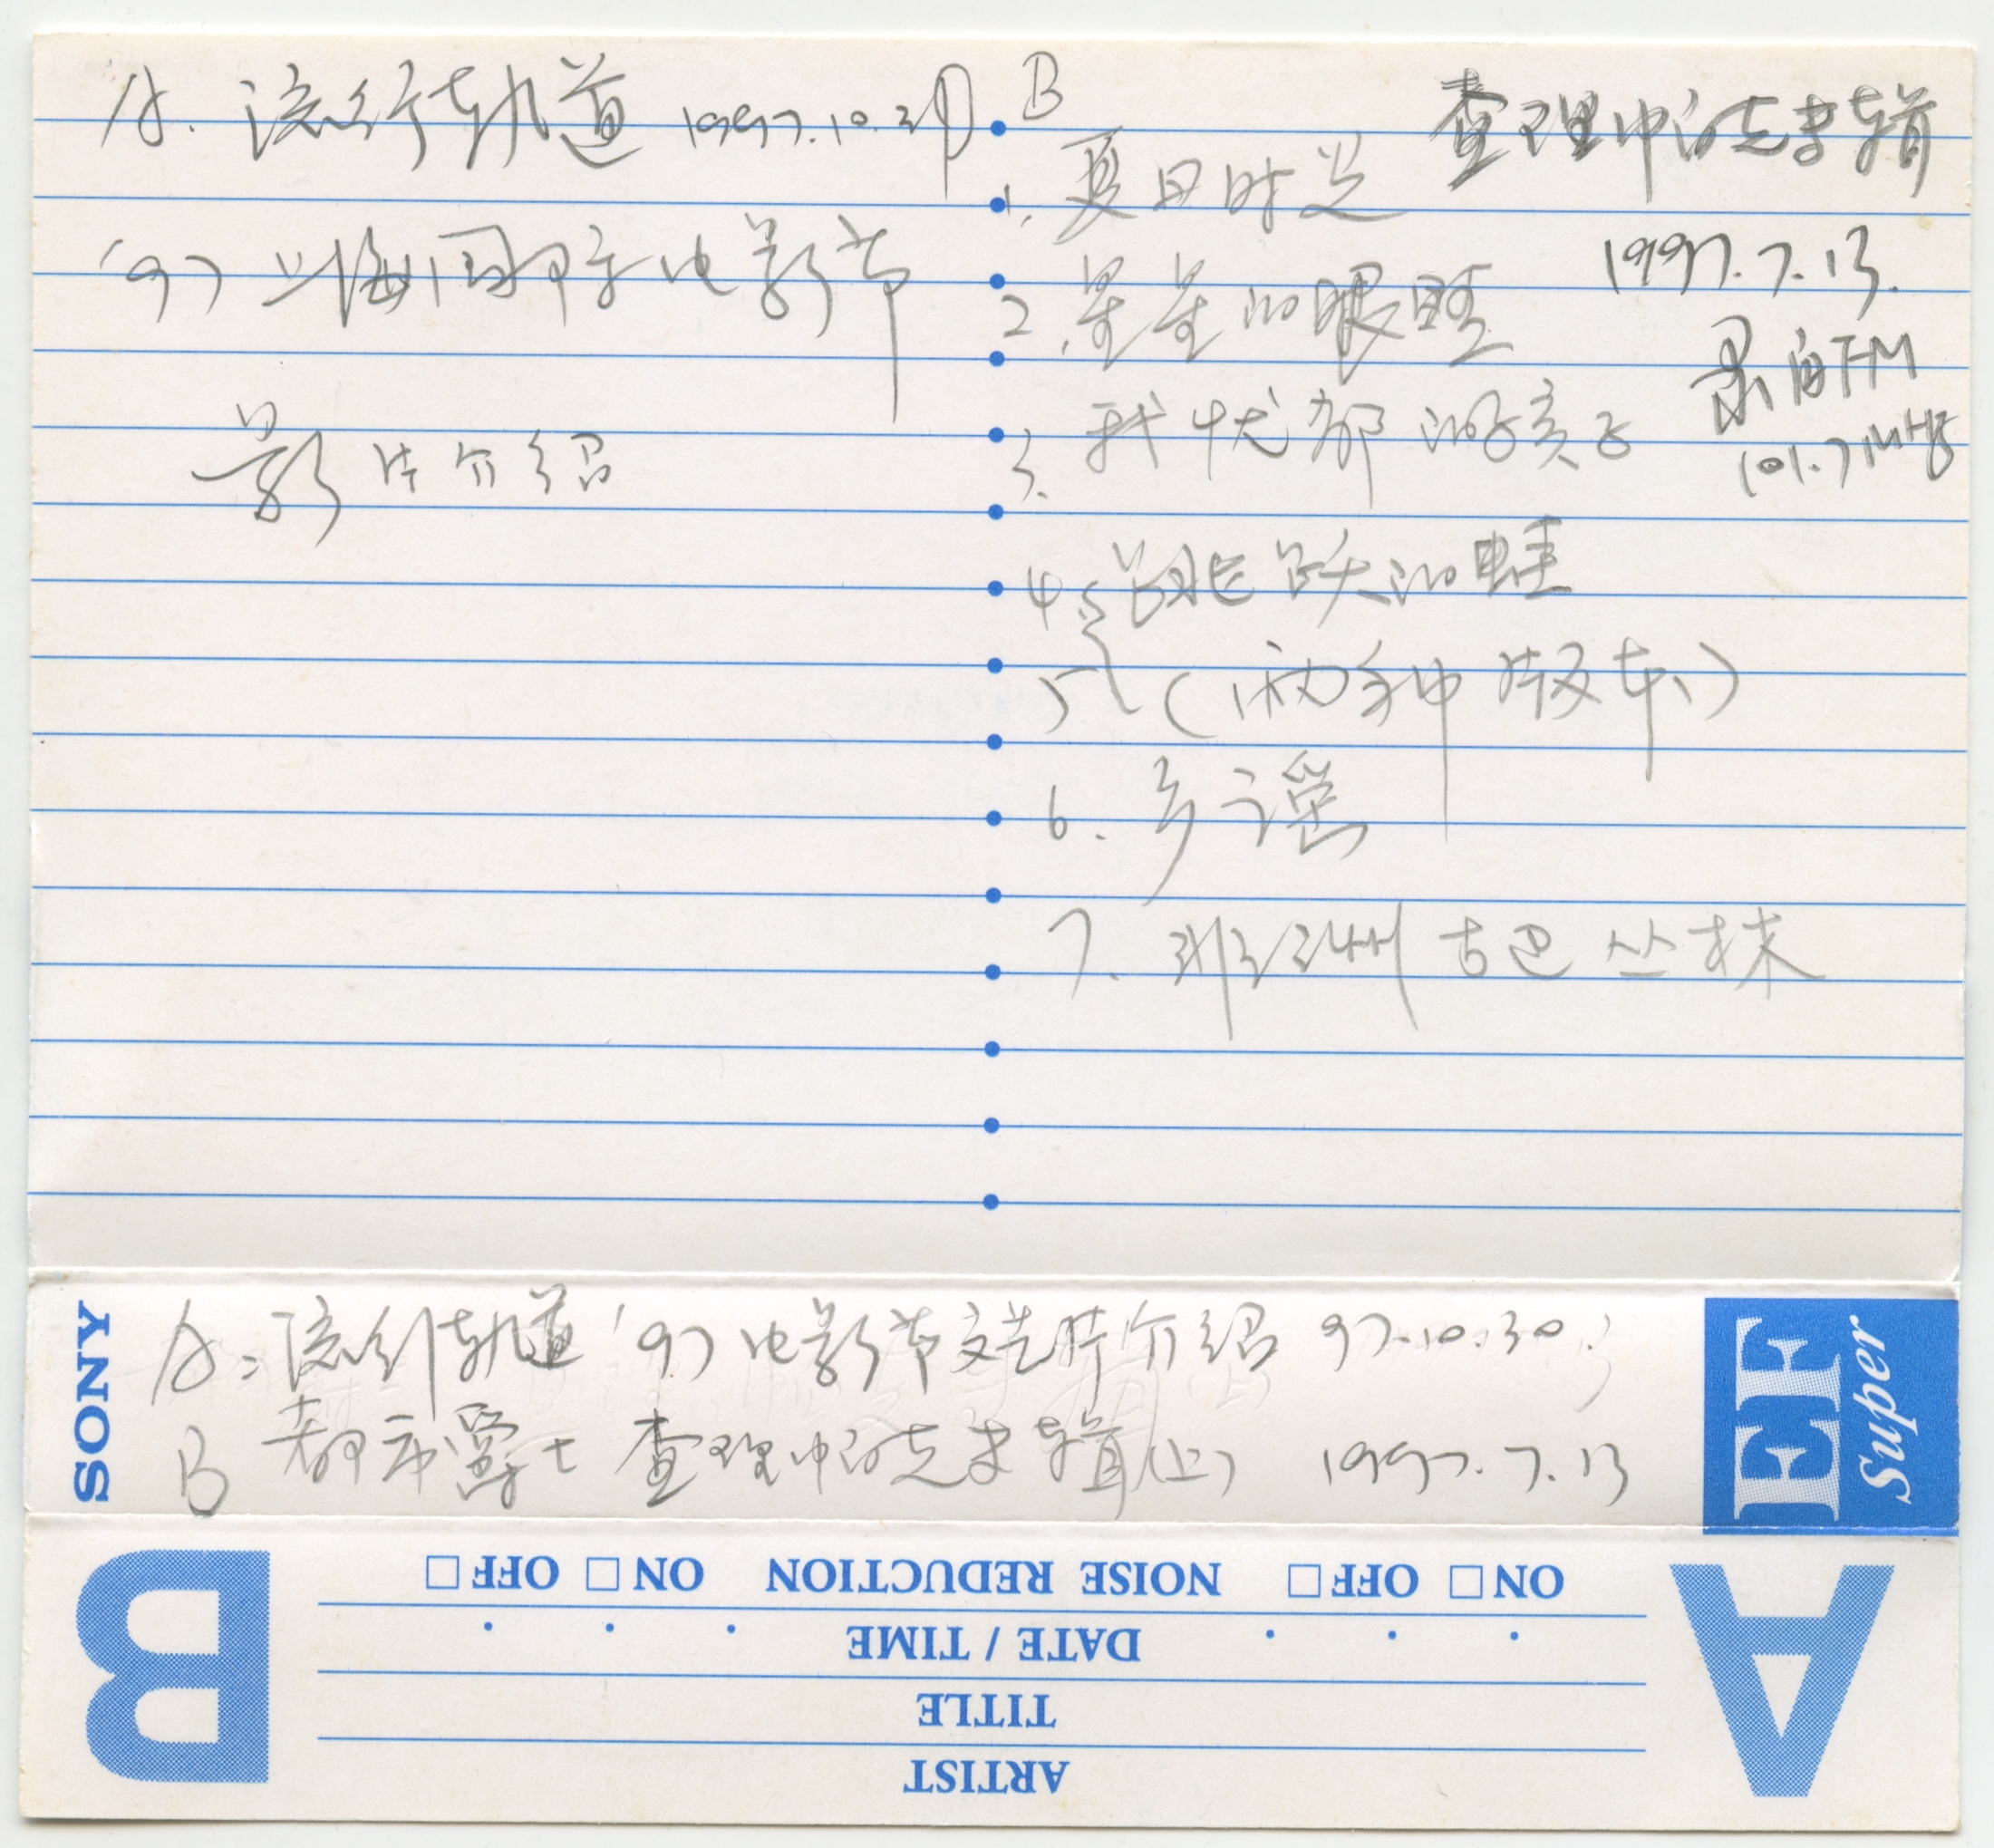 A. 流行轨道 1997.10.
'97 上海国际电影节
影片介绍
B
查理帕克专辑
1997.7.13.
录自FM
101.7MHz
1. 夏日时光
2. 星星的眼睛
3. 我忧郁的孩子
4 跳跃的蛙
5 (两种版本)
6. 乡谣
7. 非洲古巴丛林
SONY
A: 流行轨道 '97电影节文艺片介绍 97.10.30.
B 都市爵士 查理帕克专辑(上) 1997.7.13
EF
Super
B
A
ON □ OFF □ NOISE REDUCTION ON □ OFF □
DATE / TIME
TITLE
ARTIST